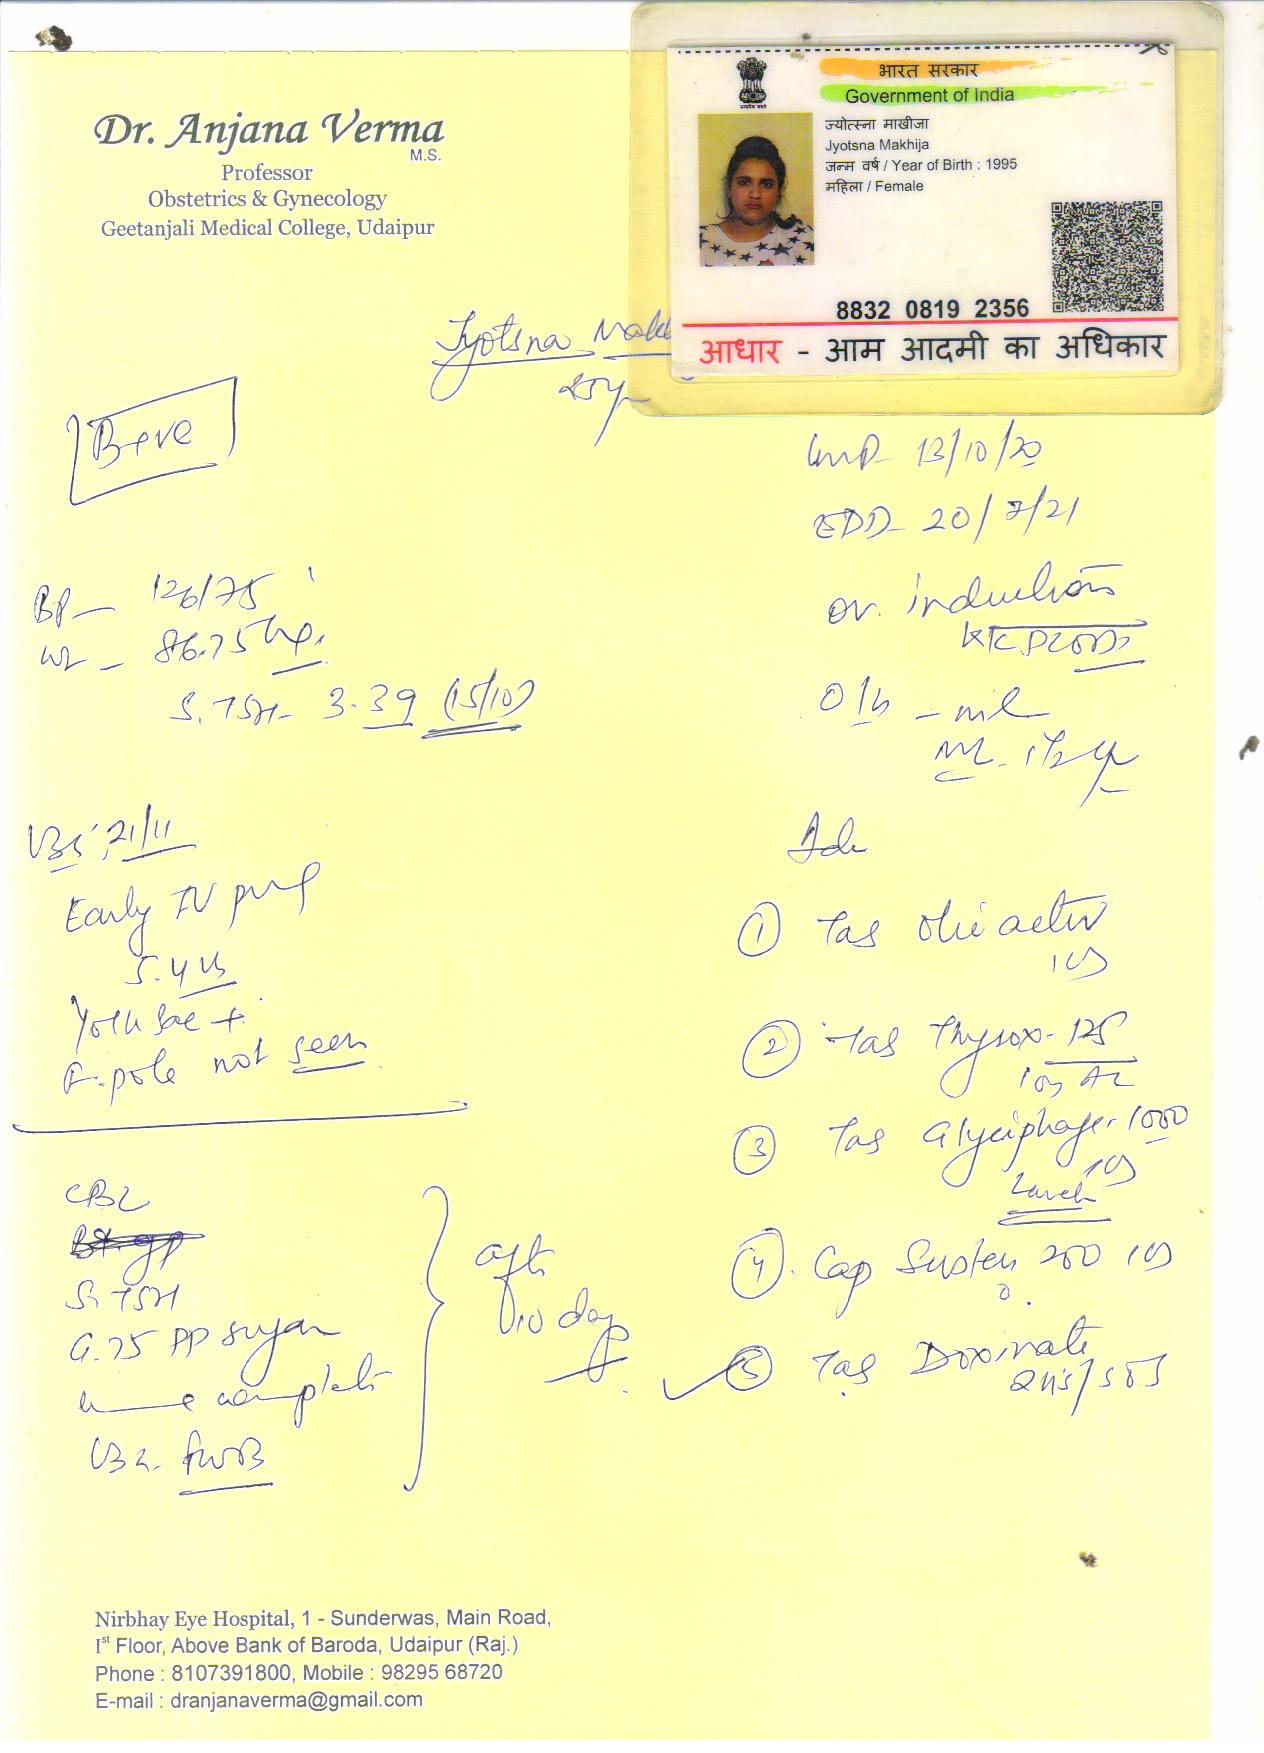 Dr. Anjana Verma
M.S.
Professor
Obstetrics & Gynecology
Geetanjali Medical College, Udaipur
भारत सरकार
Government of India
ज्योत्स्ना माखीजा
Jyotsna Makhija
जन्म वर्ष / Year of Birth : 1995
महिला / Female
8832 0819 2356
आधार - आम आदमी का अधिकार
Jyotsna
25y
B+ve
LMP- 13/10/20
EDD- 20/7/21
BP- 126/75
wt - 86.75kg.
S. TSH- 3.39 (15/10)
ov. induction
PCOD
O/h - nil
ML-
USS 21/11
Early IU preg
Yolk Sac +
F. pole not seen
Adv
① Tab
1 OD
② Tab Thyrox- 125
1 OD
③ Tab Glyciphage- 1000
1 OD
Lunch
④ Cap Susten 200 1 OD
⑤ Tab Doxinate
2HS/SOS
CBC
S. TSH
G. 75 PP sugar
complete
FWB
after
10 days
Nirbhay Eye Hospital, 1 - Sunderwas, Main Road,
Ist Floor, Above Bank of Baroda, Udaipur (Raj.)
Phone : 8107391800, Mobile : 98295 68720
E-mail : dranjanaverma@gmail.com